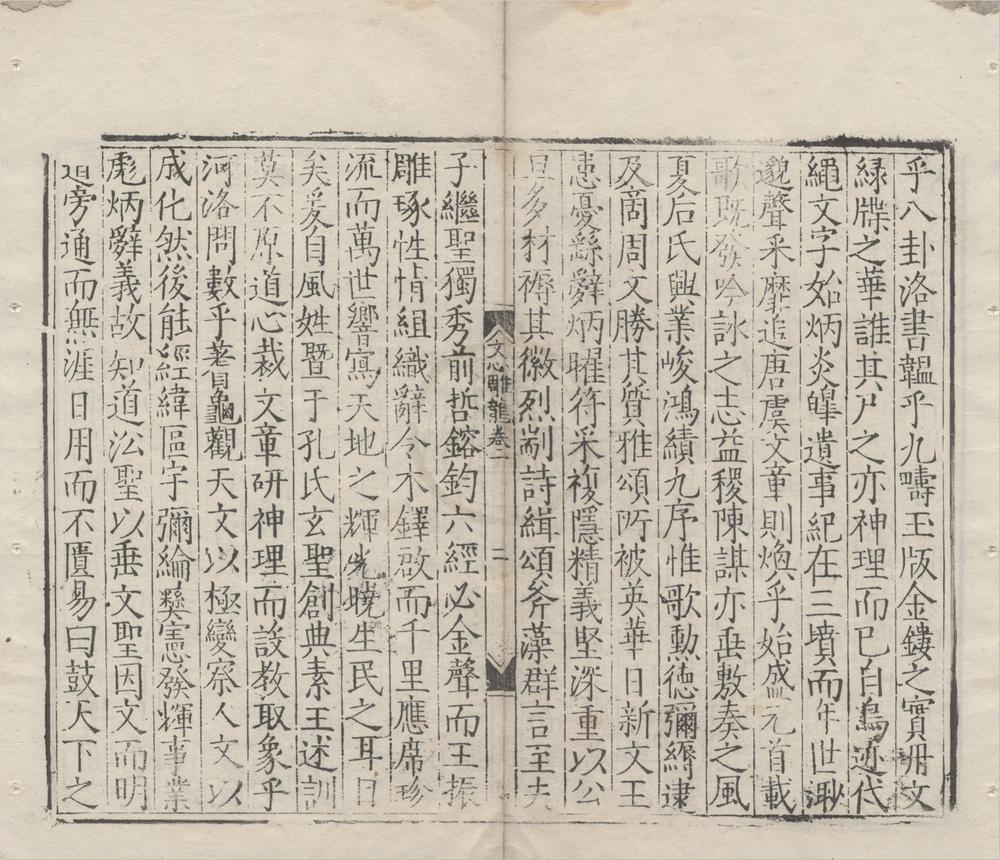 乎八卦洛書韞乎九疇玉版金鏤之實丹文
綠牒之華誰其尸之亦神理而已自鳥迹代
繩文字始炳炎皥遺事紀在三墳而年世渺
邈聲采靡追唐虞文章則煥乎始盛元首載
歌既發吟詠之志益稷陳謀亦垂敷奏之風
夏后氏興業峻鴻績九序惟歌勲德彌縟逮
及商周文勝其質雅頌所被英華日新文王
患憂繇辭炳曜符采複隱精義堅深重以公
旦多材褥其徽烈剬詩緝頌斧藻群言至夫
文心雕龍卷一
二
子繼聖獨秀前哲鎔鈞六經必金聲而玉振
雕琢性情組織辭令木鐸啟而千里應席珍
流而萬世響寫天地之輝光曉生民之耳目
矣爰自風姓暨于孔氏玄聖創典素王述訓
莫不原道心裁文章研神理而設教取象乎
河洛問數乎蓍龜觀天文以極變察人文以
成化然後能經緯區宇彌綸彝憲發輝事業
彪炳辭義故知道沿聖以垂文聖因文而明
道旁通而無涯日用而不匱易曰鼓天下之